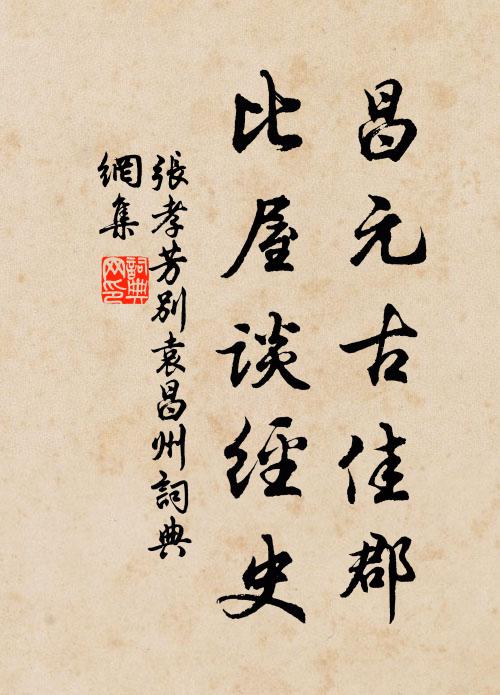 昌元古佳郡
比屋談經史
張孝芳別袁昌州詞典
網集
詞典網印